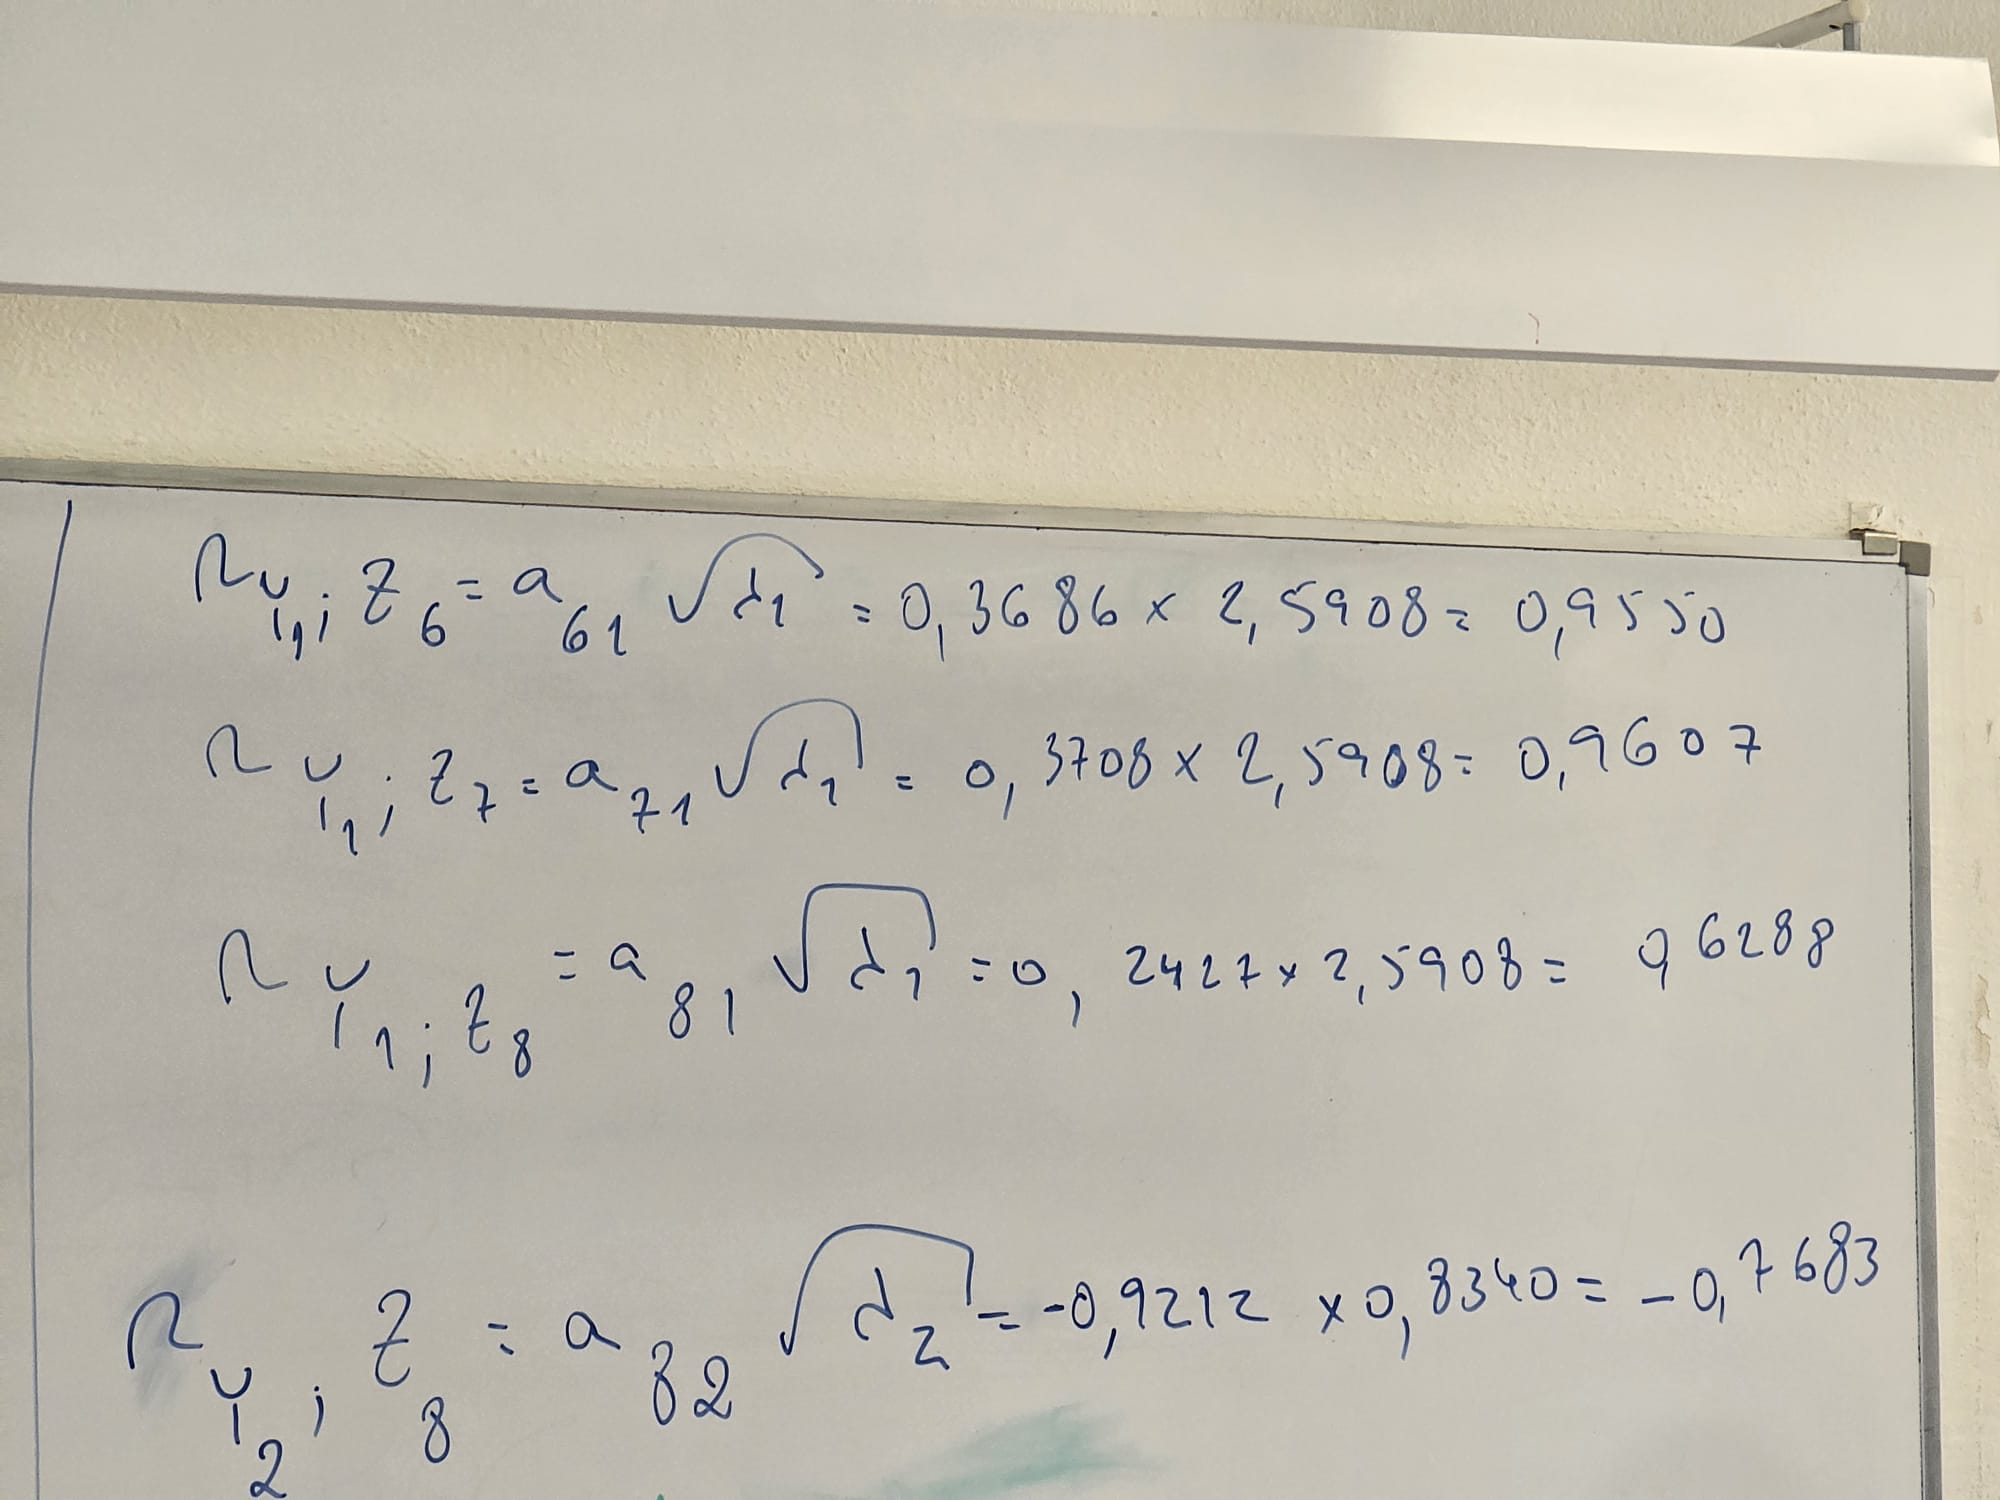 r Y₁; Z₆ = a₆₁ √λ₁ = 0,3686 × 2,5908 = 0,9550
r Y₁; Z₇ = a₇₁ √λ₁ = 0,3708 × 2,5908 = 0,9607
r Y₁; Z₈ = a₈₁ √λ₁ = 0,2427 × 2,5908 = 0,6288
r Y₂; Z₈ = a₈₂ √λ₂ = -0,9212 × 0,8340 = -0,7683